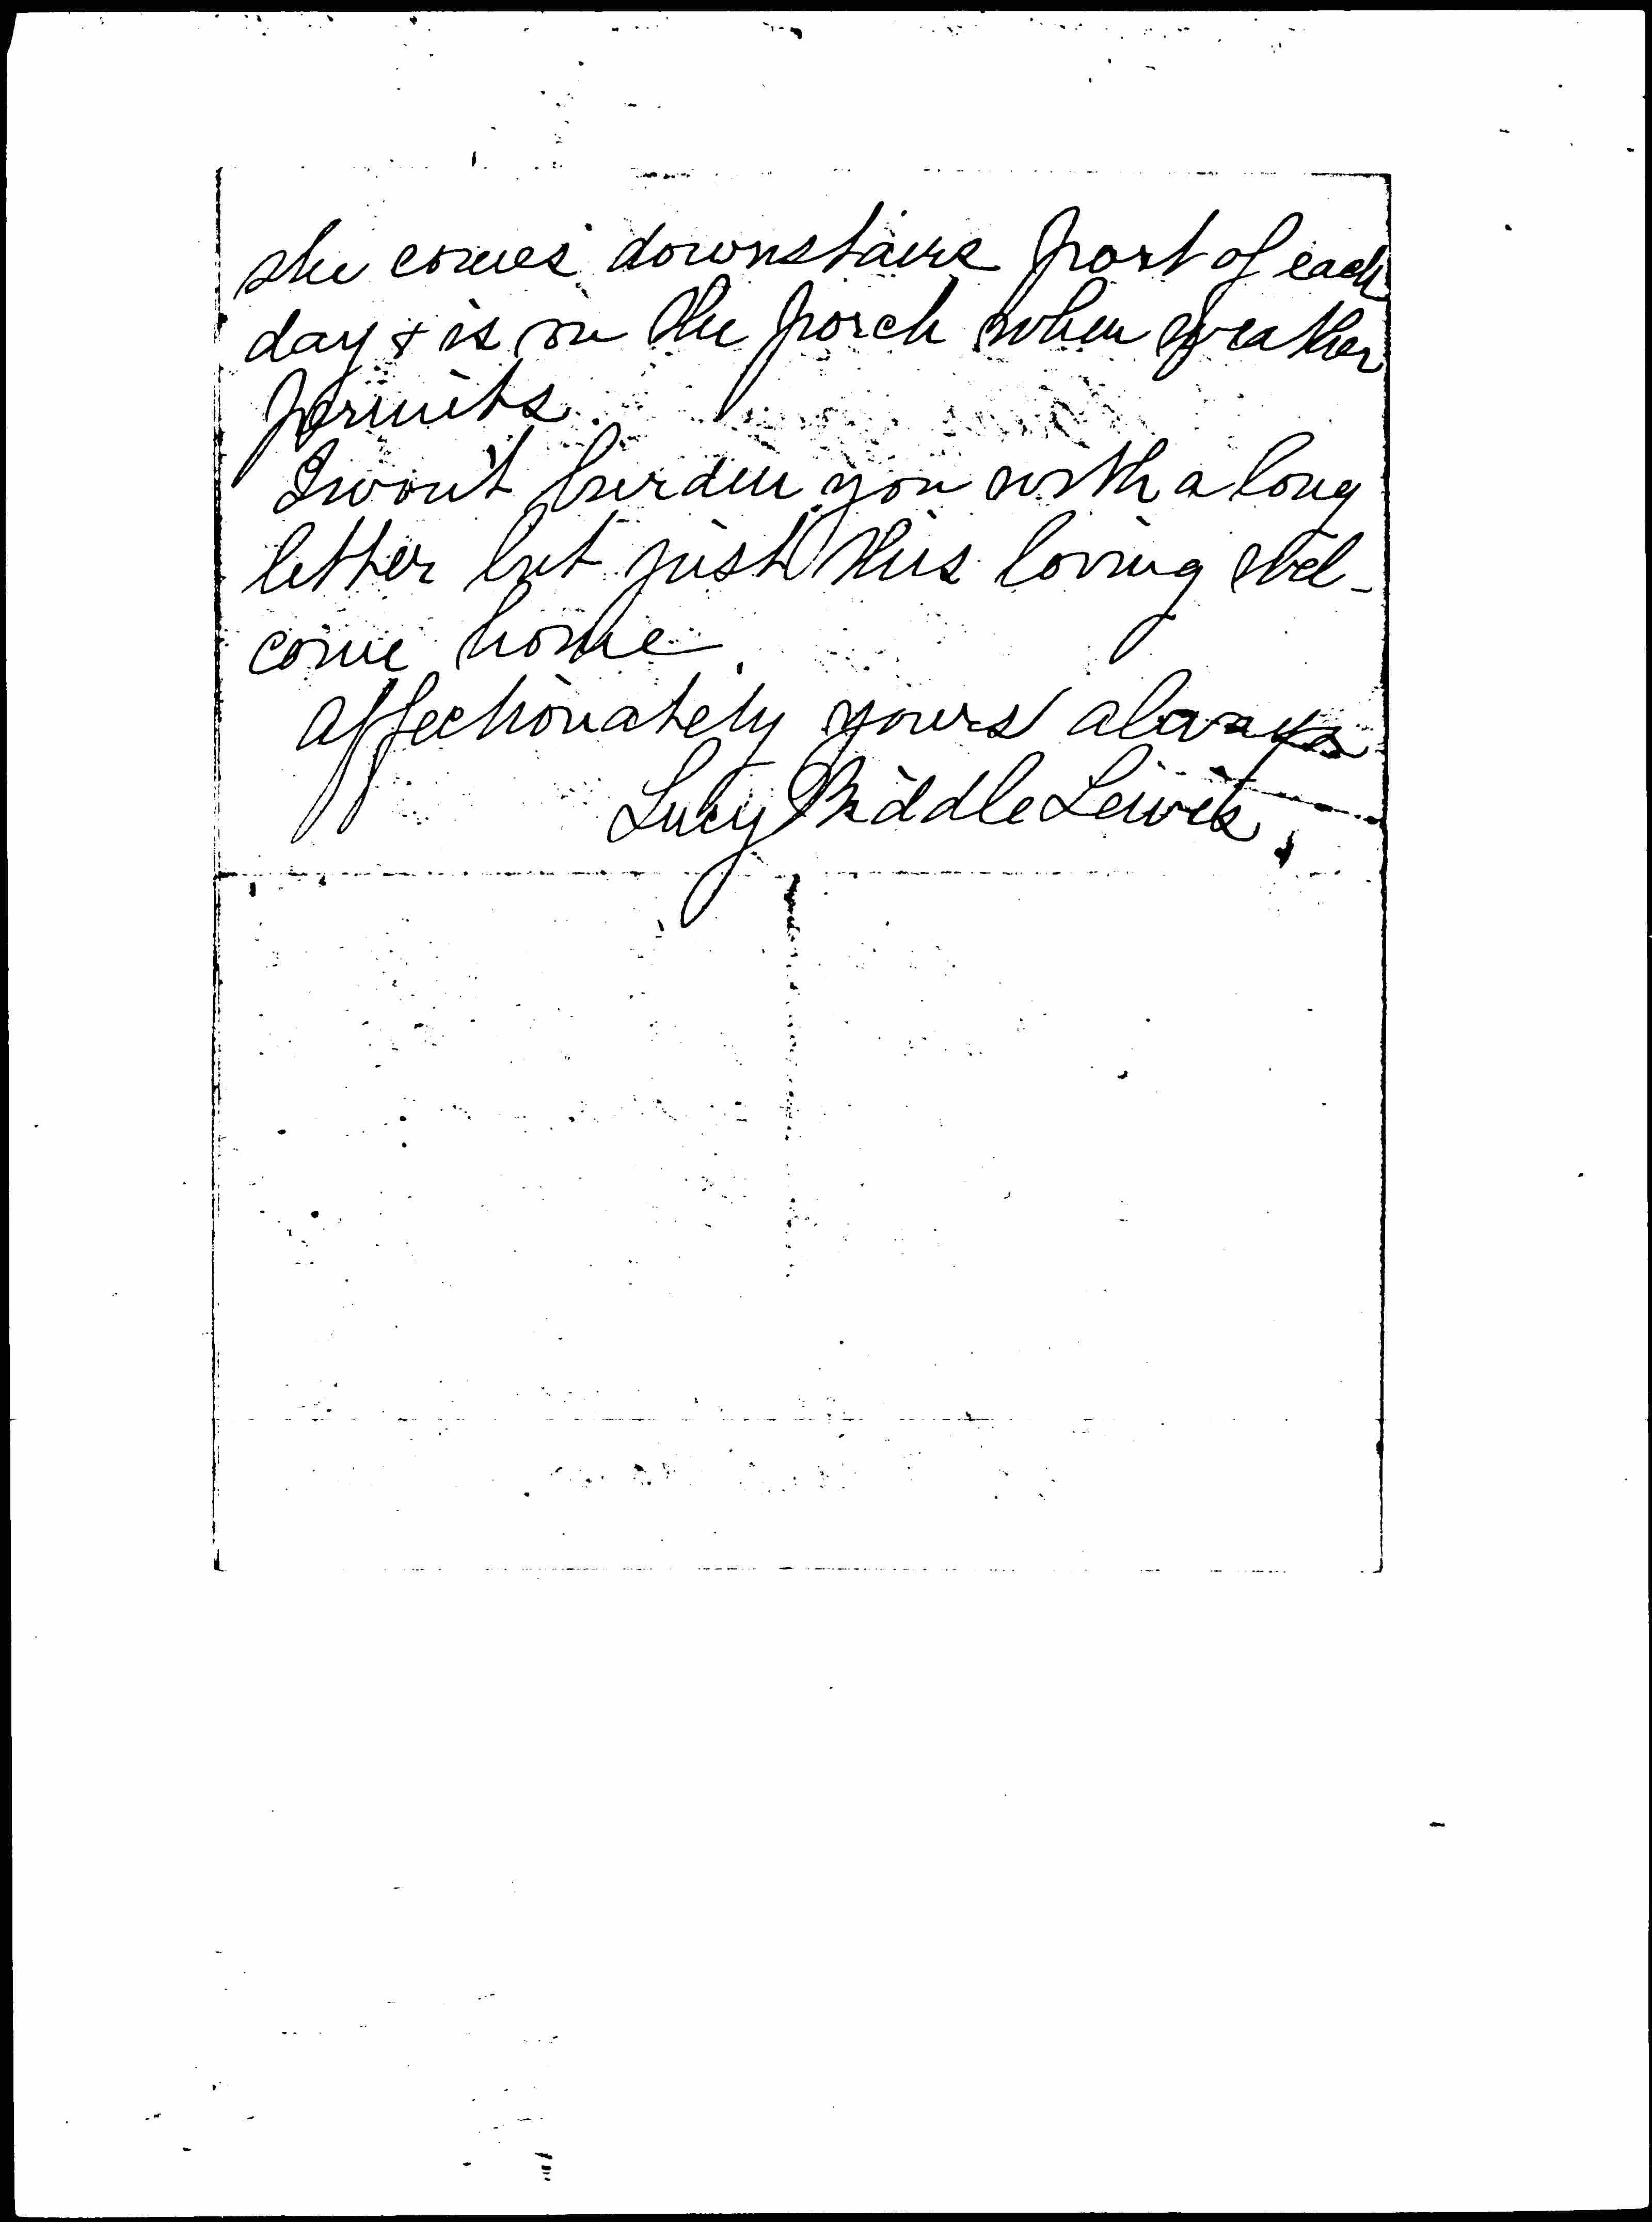 she comes downstairs part of each
day & is on the porch when weather
permits.
I won't burden you with a long
letter but just this loving wel-
come home.
Affectionately yours always
Lucy Biddle Lewis.